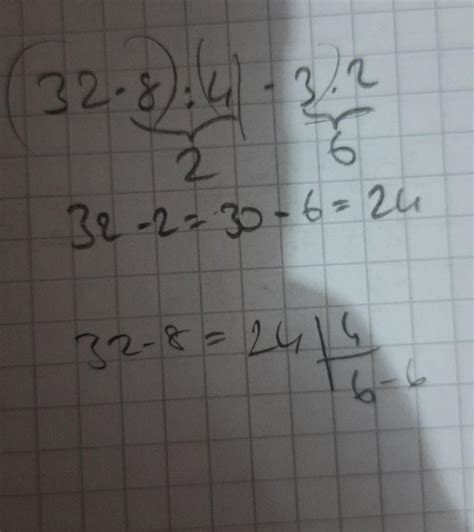 (32 - 8) : (4 - 3) . 2
2 6
32 - 2 = 30 - 6 = 24
32 - 8 = 24 | 4
6 - 6